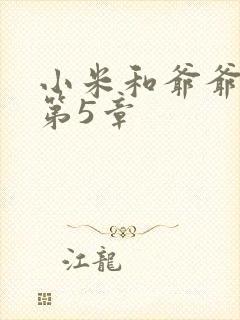 小米和爷爷
第5章
江龍